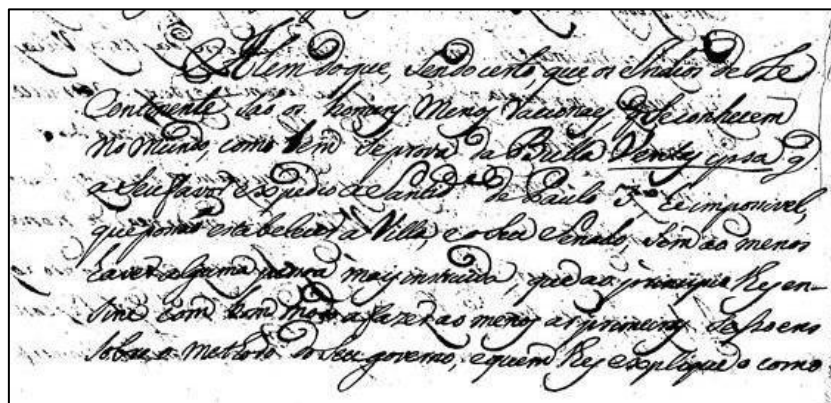 Alem do que, sendo certo, que os Indios deste
Continente saõ os homens menos racionaes, q̃ se conhecem
no Mundo, como bem se prova da Bulla Veritas ipsa q̃
a seu favor expedio a Santid.e de Paulo 3.º he impossivel,
que possaõ estabelecer a Villa, e o seu Senado, sem ao menos
haver alguma pessoa mais instruida, que ao principio lhes en-
sine com bom modo a fazer ao menos as primeiras
sobre o methodo do seu governo, e quem lhes explique o como